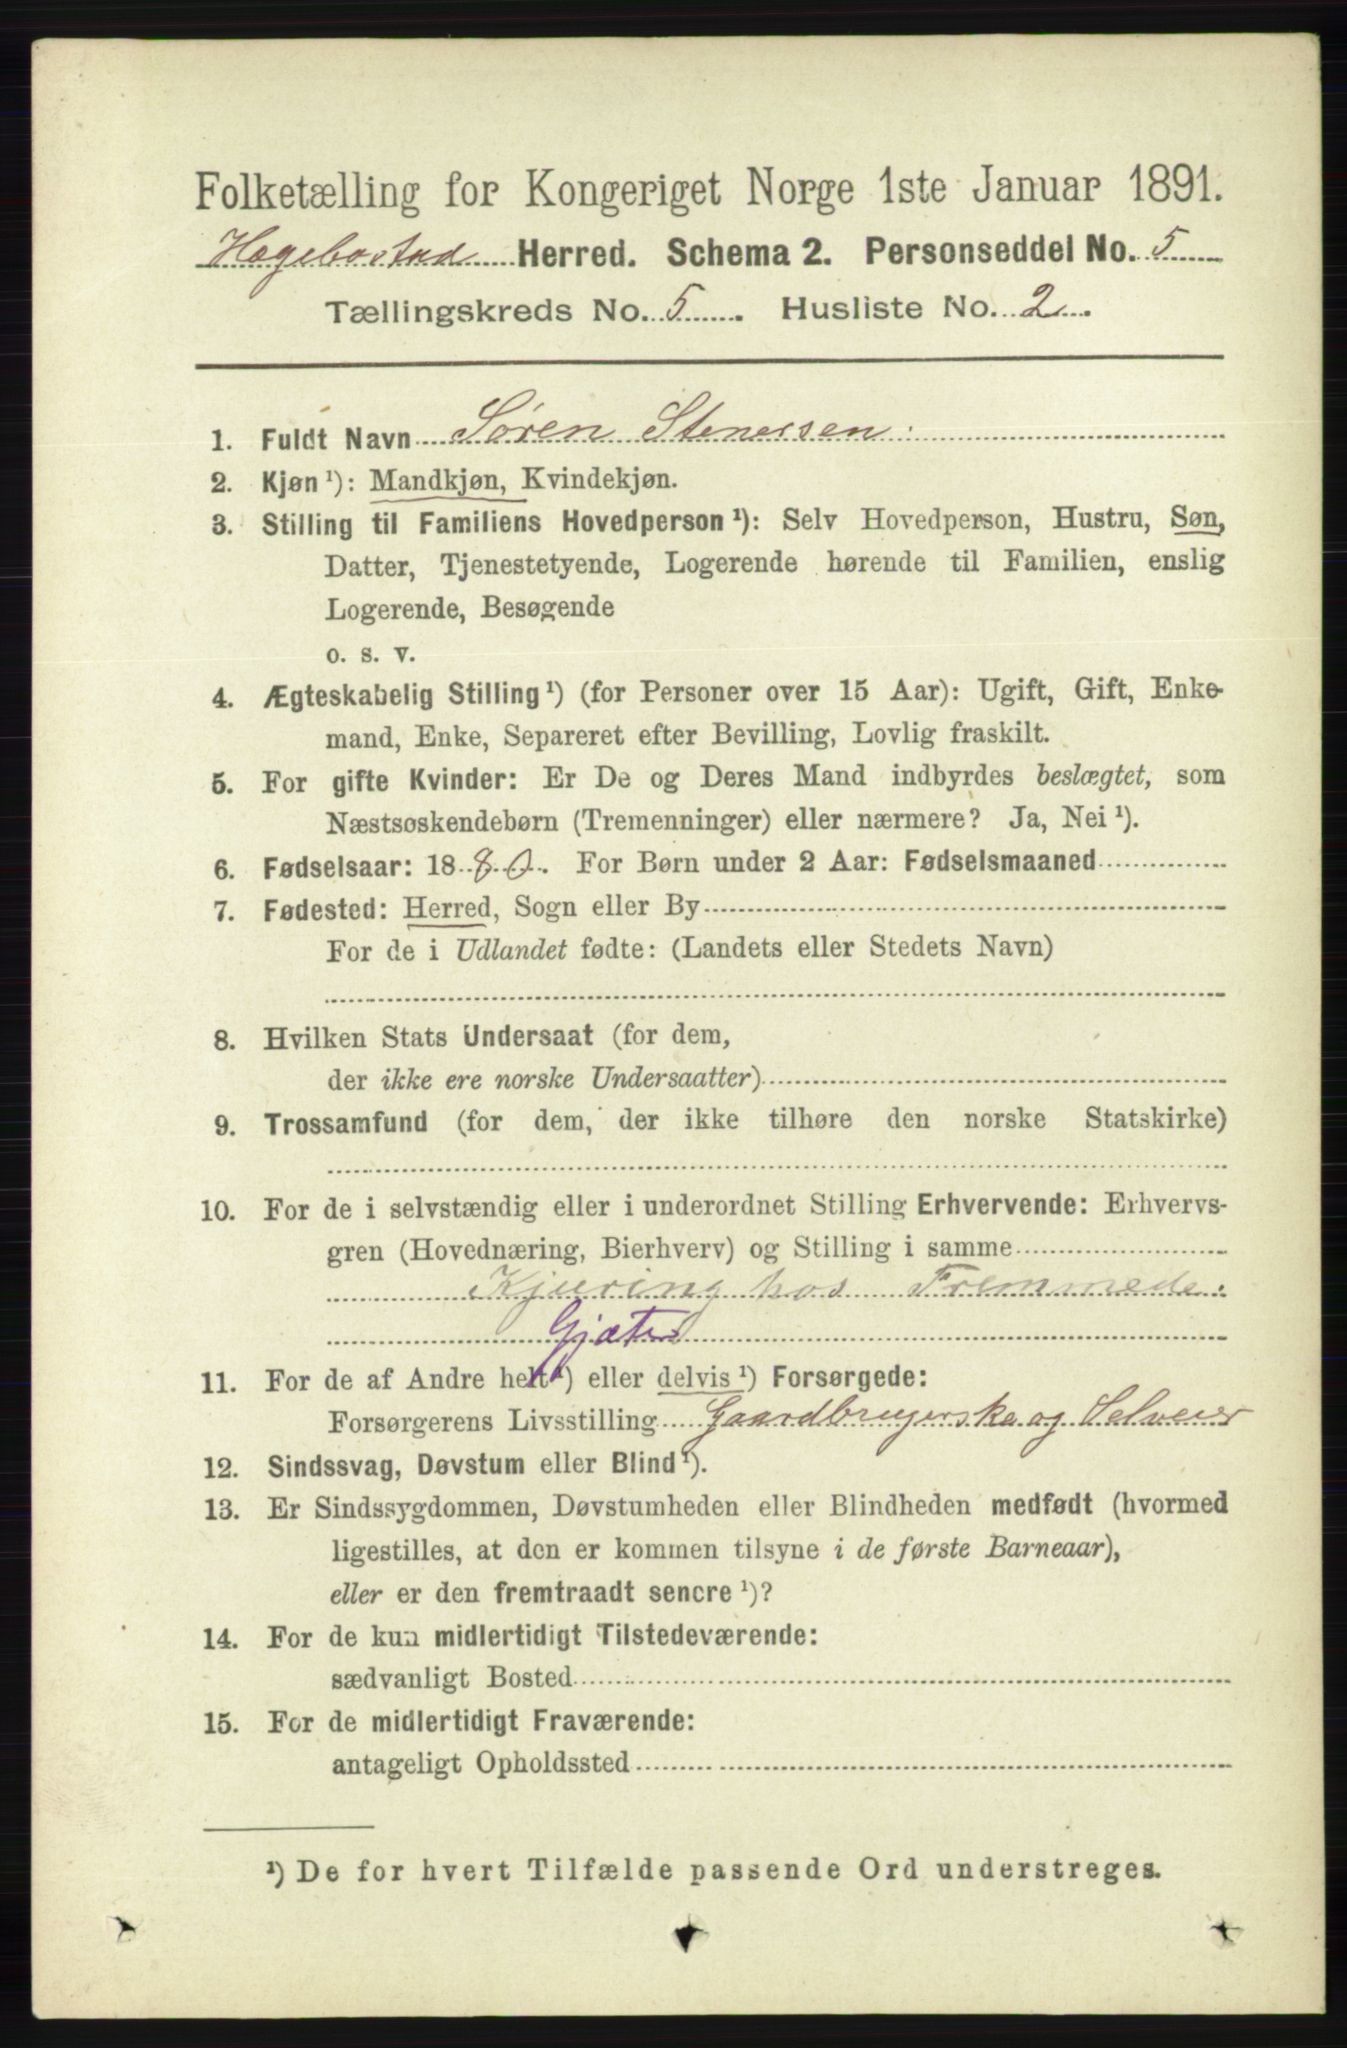 Folketælling for Kongeriget Norge 1ste Januar 1891.
Hægebostad Herred. Schema 2. Personseddel No. 5
Tællingskreds No. 5. Husliste No. 2.
1. Fuldt Navn Søren Stenersen.
2. Kjøn ¹): Mandkjøn, Kvindekjøn.
3. Stilling til Familiens Hovedperson ¹): Selv Hovedperson, Hustru, Søn,
Datter, Tjenestetyende, Logerende hørende til Familien, enslig
Logerende, Besøgende
o. s. v.
4. Ægteskabelig Stilling ¹) (for Personer over 15 Aar): Ugift, Gift, Enke-
mand, Enke, Separeret efter Bevilling, Lovlig fraskilt.
5. For gifte Kvinder: Er De og Deres Mand indbyrdes beslægtet, som
Næstsøskendebørn (Tremenninger) eller nærmere? Ja, Nei ¹).
6. Fødselsaar: 1880. For Børn under 2 Aar: Fødselsmaaned
7. Fødested: Herred, Sogn eller By
For de i Udlandet fødte: (Landets eller Stedets Navn)
8. Hvilken Stats Undersaat (for dem,
der ikke ere norske Undersaatter)
9. Trossamfund (for dem, der ikke tilhøre den norske Statskirke)
10. For de i selvstændig eller i underordnet Stilling Erhvervende: Erhvervs-
gren (Hovednæring, Bierhverv) og Stilling i samme
Kjuring hos Fremmede.
Gjæter
11. For de af Andre helt ¹) eller delvis ¹) Forsørgede:
Forsørgerens Livsstilling Gaardbrugerske og Selveier
12. Sindssvag, Døvstum eller Blind ¹).
13. Er Sindssygdommen, Døvstumheden eller Blindheden medfødt (hvormed
ligestilles, at den er kommen tilsyne i de første Barneaar),
eller er den fremtraadt senere ¹)?
14. For de kun midlertidigt Tilstedeværende:
sædvanligt Bosted
15. For de midlertidigt Fraværende:
antageligt Opholdssted
¹) De for hvert Tilfælde passende Ord understreges.